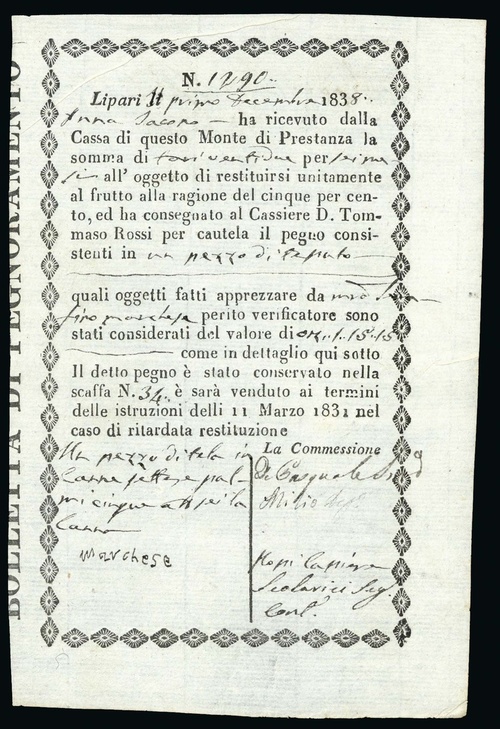 BOLLETTA DI PEGNORAMENTO
N. 1290.
Lipari lì primo Decembre 1838.
Anna Iacono — ha ricevuto dalla
Cassa di questo Monte di Prestanza la
somma di tarì ventidue per sei me
si all' oggetto di restituirsi unitamente
al frutto alla ragione del cinque per cen-
to, ed ha consegnato al Cassiere D. Tom-
maso Rossi per cautela il pegno consi-
stenti in un pezzo di
quali oggetti fatti apprezzare da
marchese perito verificatore sono
stati considerati del valore di on. 1. 15. 15
come in dettaglio qui sotto
Il detto pegno è stato conservato nella
scaffa N. 34. è sarà venduto ai termini
delle istruzioni delli 11 Marzo 1831 nel
caso di ritardata restituzione
Un pezzo di tela in
canne sette e pal
mi cinque a sei la
canna
Marchese
La Commessione
De Pasquale
Rossi Cassiere
Scolarici Seg.
Cont.